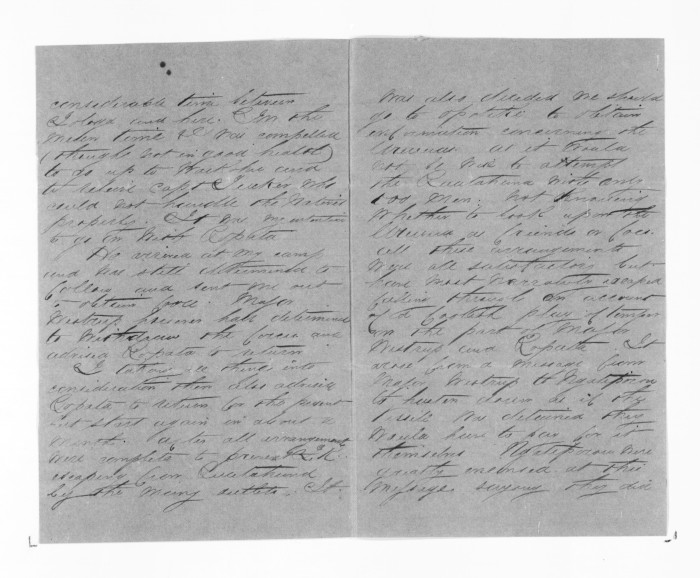 considerable time between
I and here. In the
mean time I was compelled
(though not in good health)
to go up to and
to relieve Capt who
could not handle the Natives
properly. It was my intention
to go in with Ropata
He arrived at my camp
and was still determined to
follow and sent me out
to obtain food. Major
Westrup however had determined
to withdraw the forces and
advised Ropata to return.
I taking all things into
consideration then also advised
Ropata to return for the present
but start again in about a
month. After all arrangements
were complete to prevent K
escaping from Ruatahuna
by the many outlets. It
was also decided we should
go to Opotiki to obtain
information concerning the
Urewera as it would
not be wise to attempt
the Ruatahuna with only
100 men. Not knowing
whether to look upon the
Urewera as friends or foes.
all these arrangements
were all satisfactory but
have most narrowly escaped
falling through on account
of a foolish play of temper
on the part of Major
Westrup and Ropata. It
arose from a message from
Major Westrup to Ngatiporou
to hasten down as if the
vessel was detained they
would have to pay for it
themselves. Ngatiporou were
greatly incensed at this
message saying they did